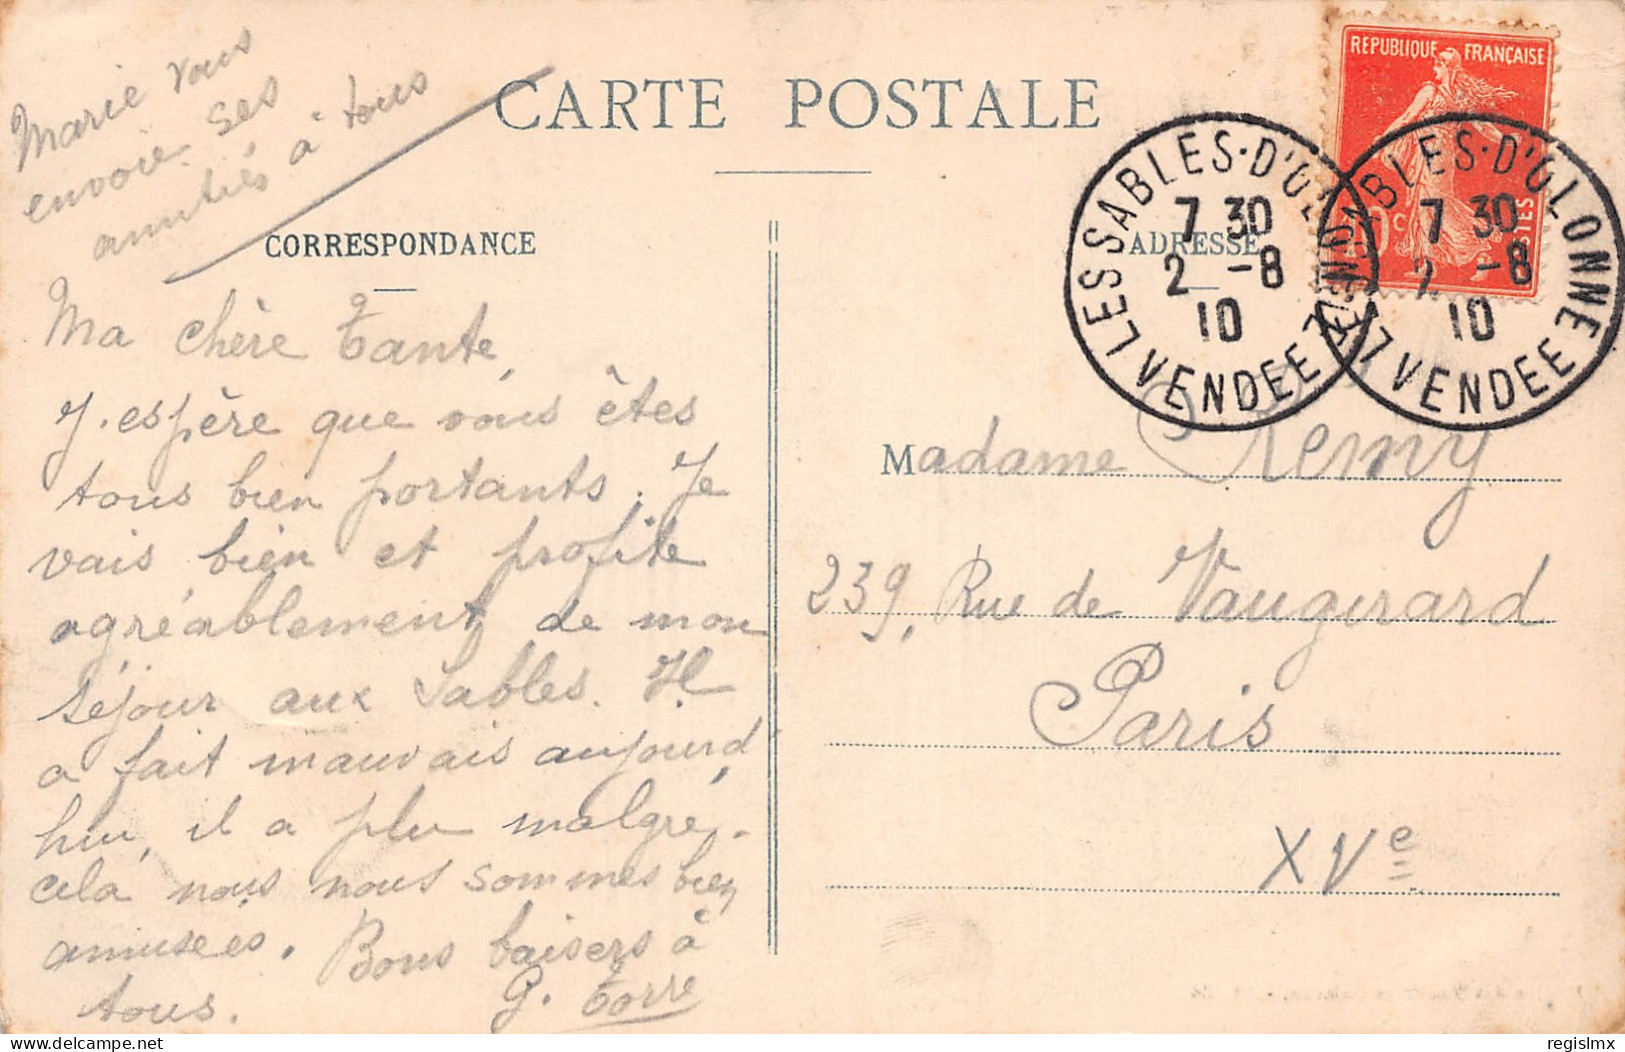 Marie vous
envoie ses
amitiés à tous
CARTE POSTALE
CORRESPONDANCE
Ma chère Tante,
J. espère que vous êtes
tous bien portants. Je
vais bien et profite
agréablement de mon
séjour aux Sables. Il
a fait mauvais aujourd'
hui, il a plu malgré
cela nous nous sommes bien
amusées. Bons baisers à
tous. G. Torre
REPUBLIQUE FRANÇAISE
10c POSTES
LES SABLES-D'OLONNE
7 30
2 -8
10
VENDEE
LES SABLES-D'OLONNE
7 30
2 -8
10
VENDEE
ADRESSE
Madame Remy
239, Rue de Vaugirard
Paris
XVe
regislmx